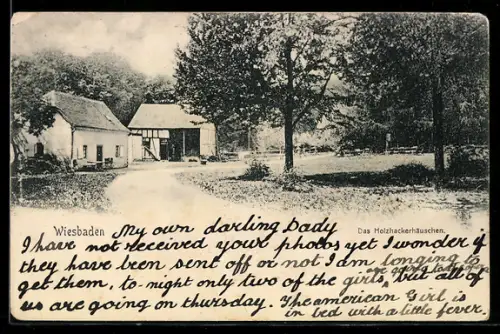 Wiesbaden
Das Holzhackerhäuschen.
My own darling Dady
I have not received your photos yet I wonder if
they have been sent off or not I am longing to
get them, to-night only two of the girls are going to but all of
us are going on thursday. The american Girl is
in bed with a little fever.